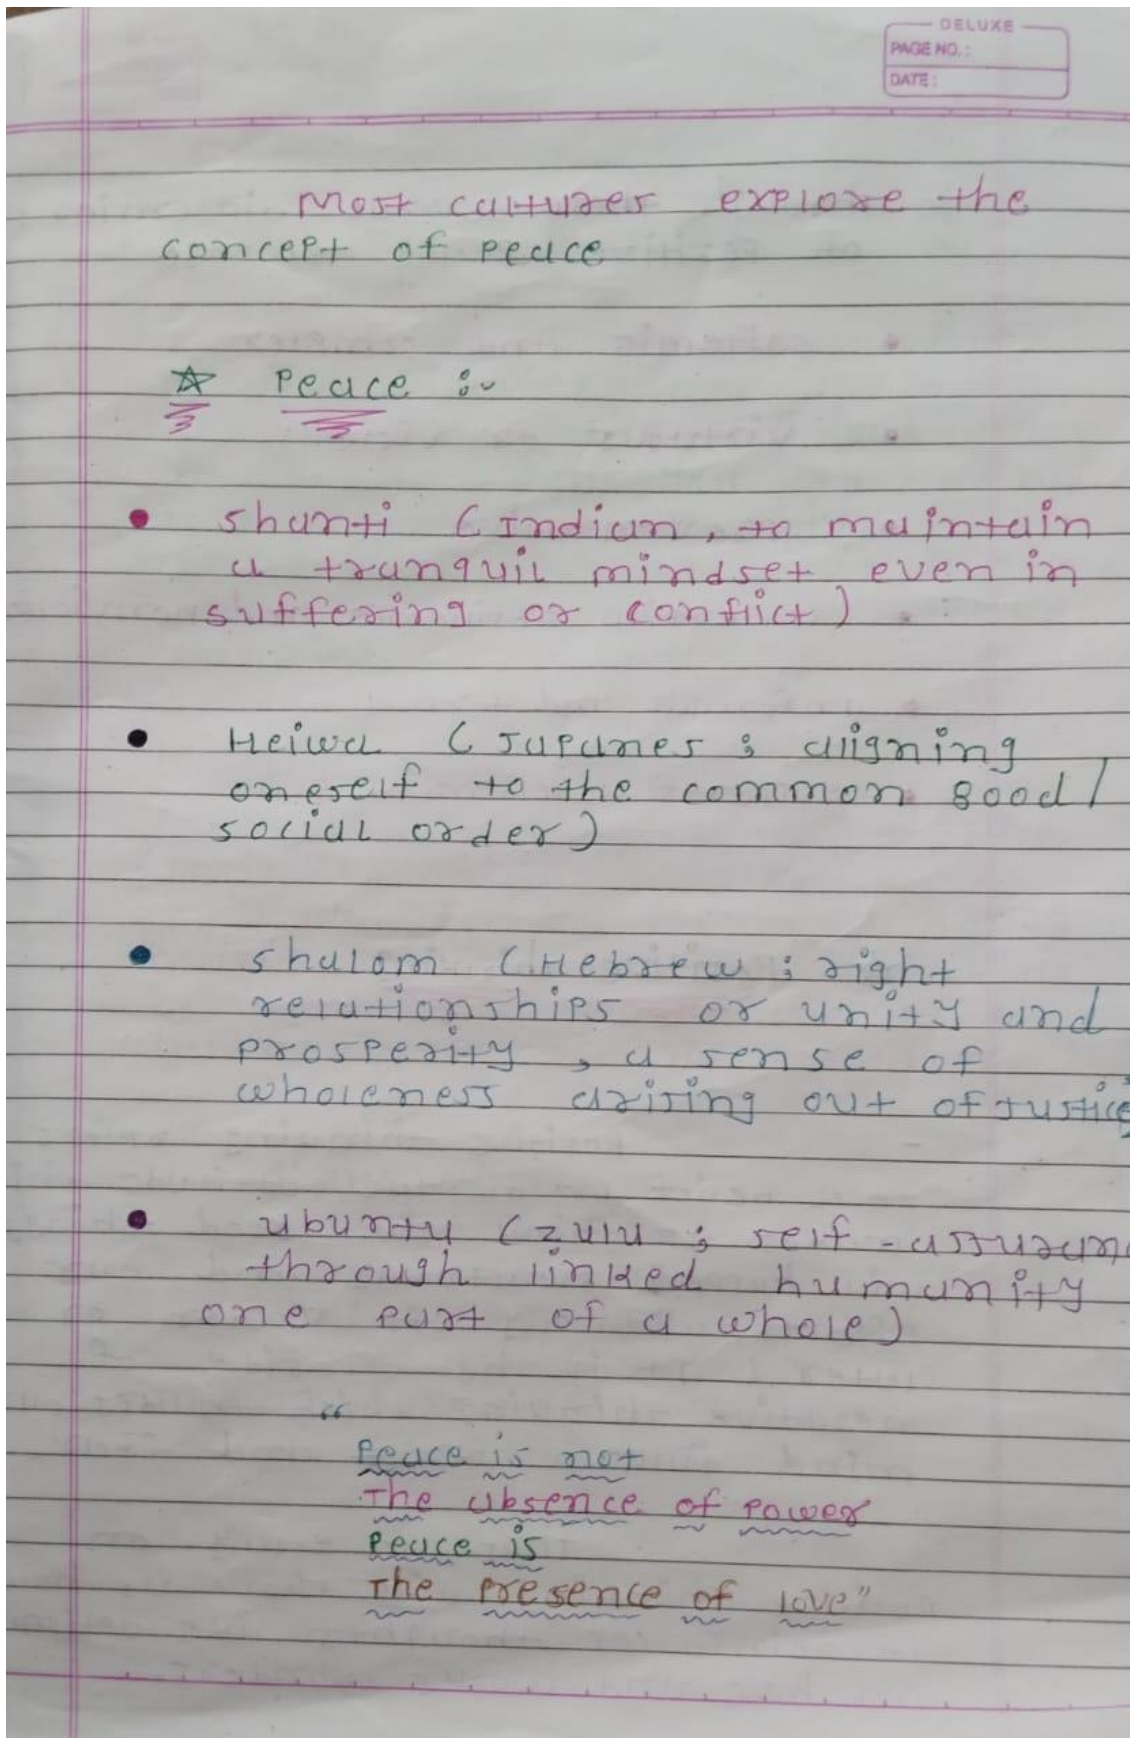 DELUXE
PAGE NO.:
DATE:
Most cultures explore the
concept of peace
☆ Peace :-
• Shanti (Indian, to maintain
a tranquil mindset even in
suffering or conflict)
• Heiwa (Japanes ; aligning
oneself to the common good/
social order)
• Shalom (Hebrew ; right
relationships or unity and
prosperity, a sense of
wholeness arising out of justice
• Ubuntu (Zulu ; self-assuran
through linked humanity
one part of a whole)
"
Peace is not
The absence of power
Peace is
The presence of love"